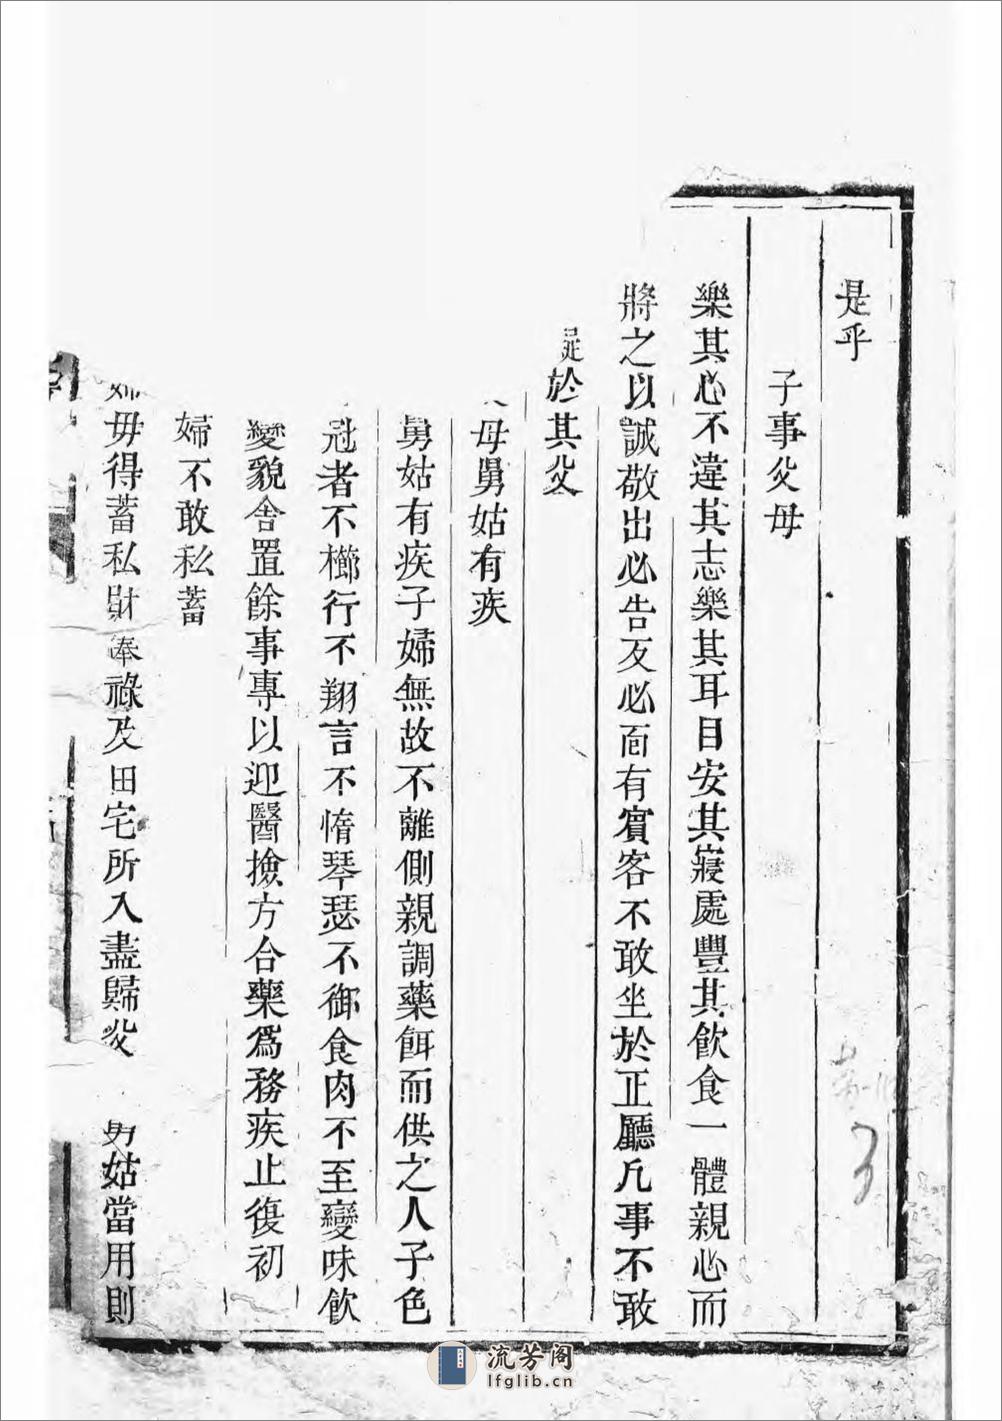 是乎
子事父母
樂其心不違其志樂其耳目安其寢處豐其飲食一體親心而
將之以誠敬出必告反必面有賓客不敢坐於正廳凡事不敢
於其父
母舅姑有疾
舅姑有疾子婦無故不離側親調藥餌而供之人子色
冠者不櫛行不翔言不惰琴瑟不御食肉不至變味飲
變貌舍置餘事專以迎醫撿方合藥爲務疾止復初
婦不敢私蓄
婦毋得蓄私財俸祿及田宅所入盡歸父
姑當用則
流芳阁
lfglib.cn